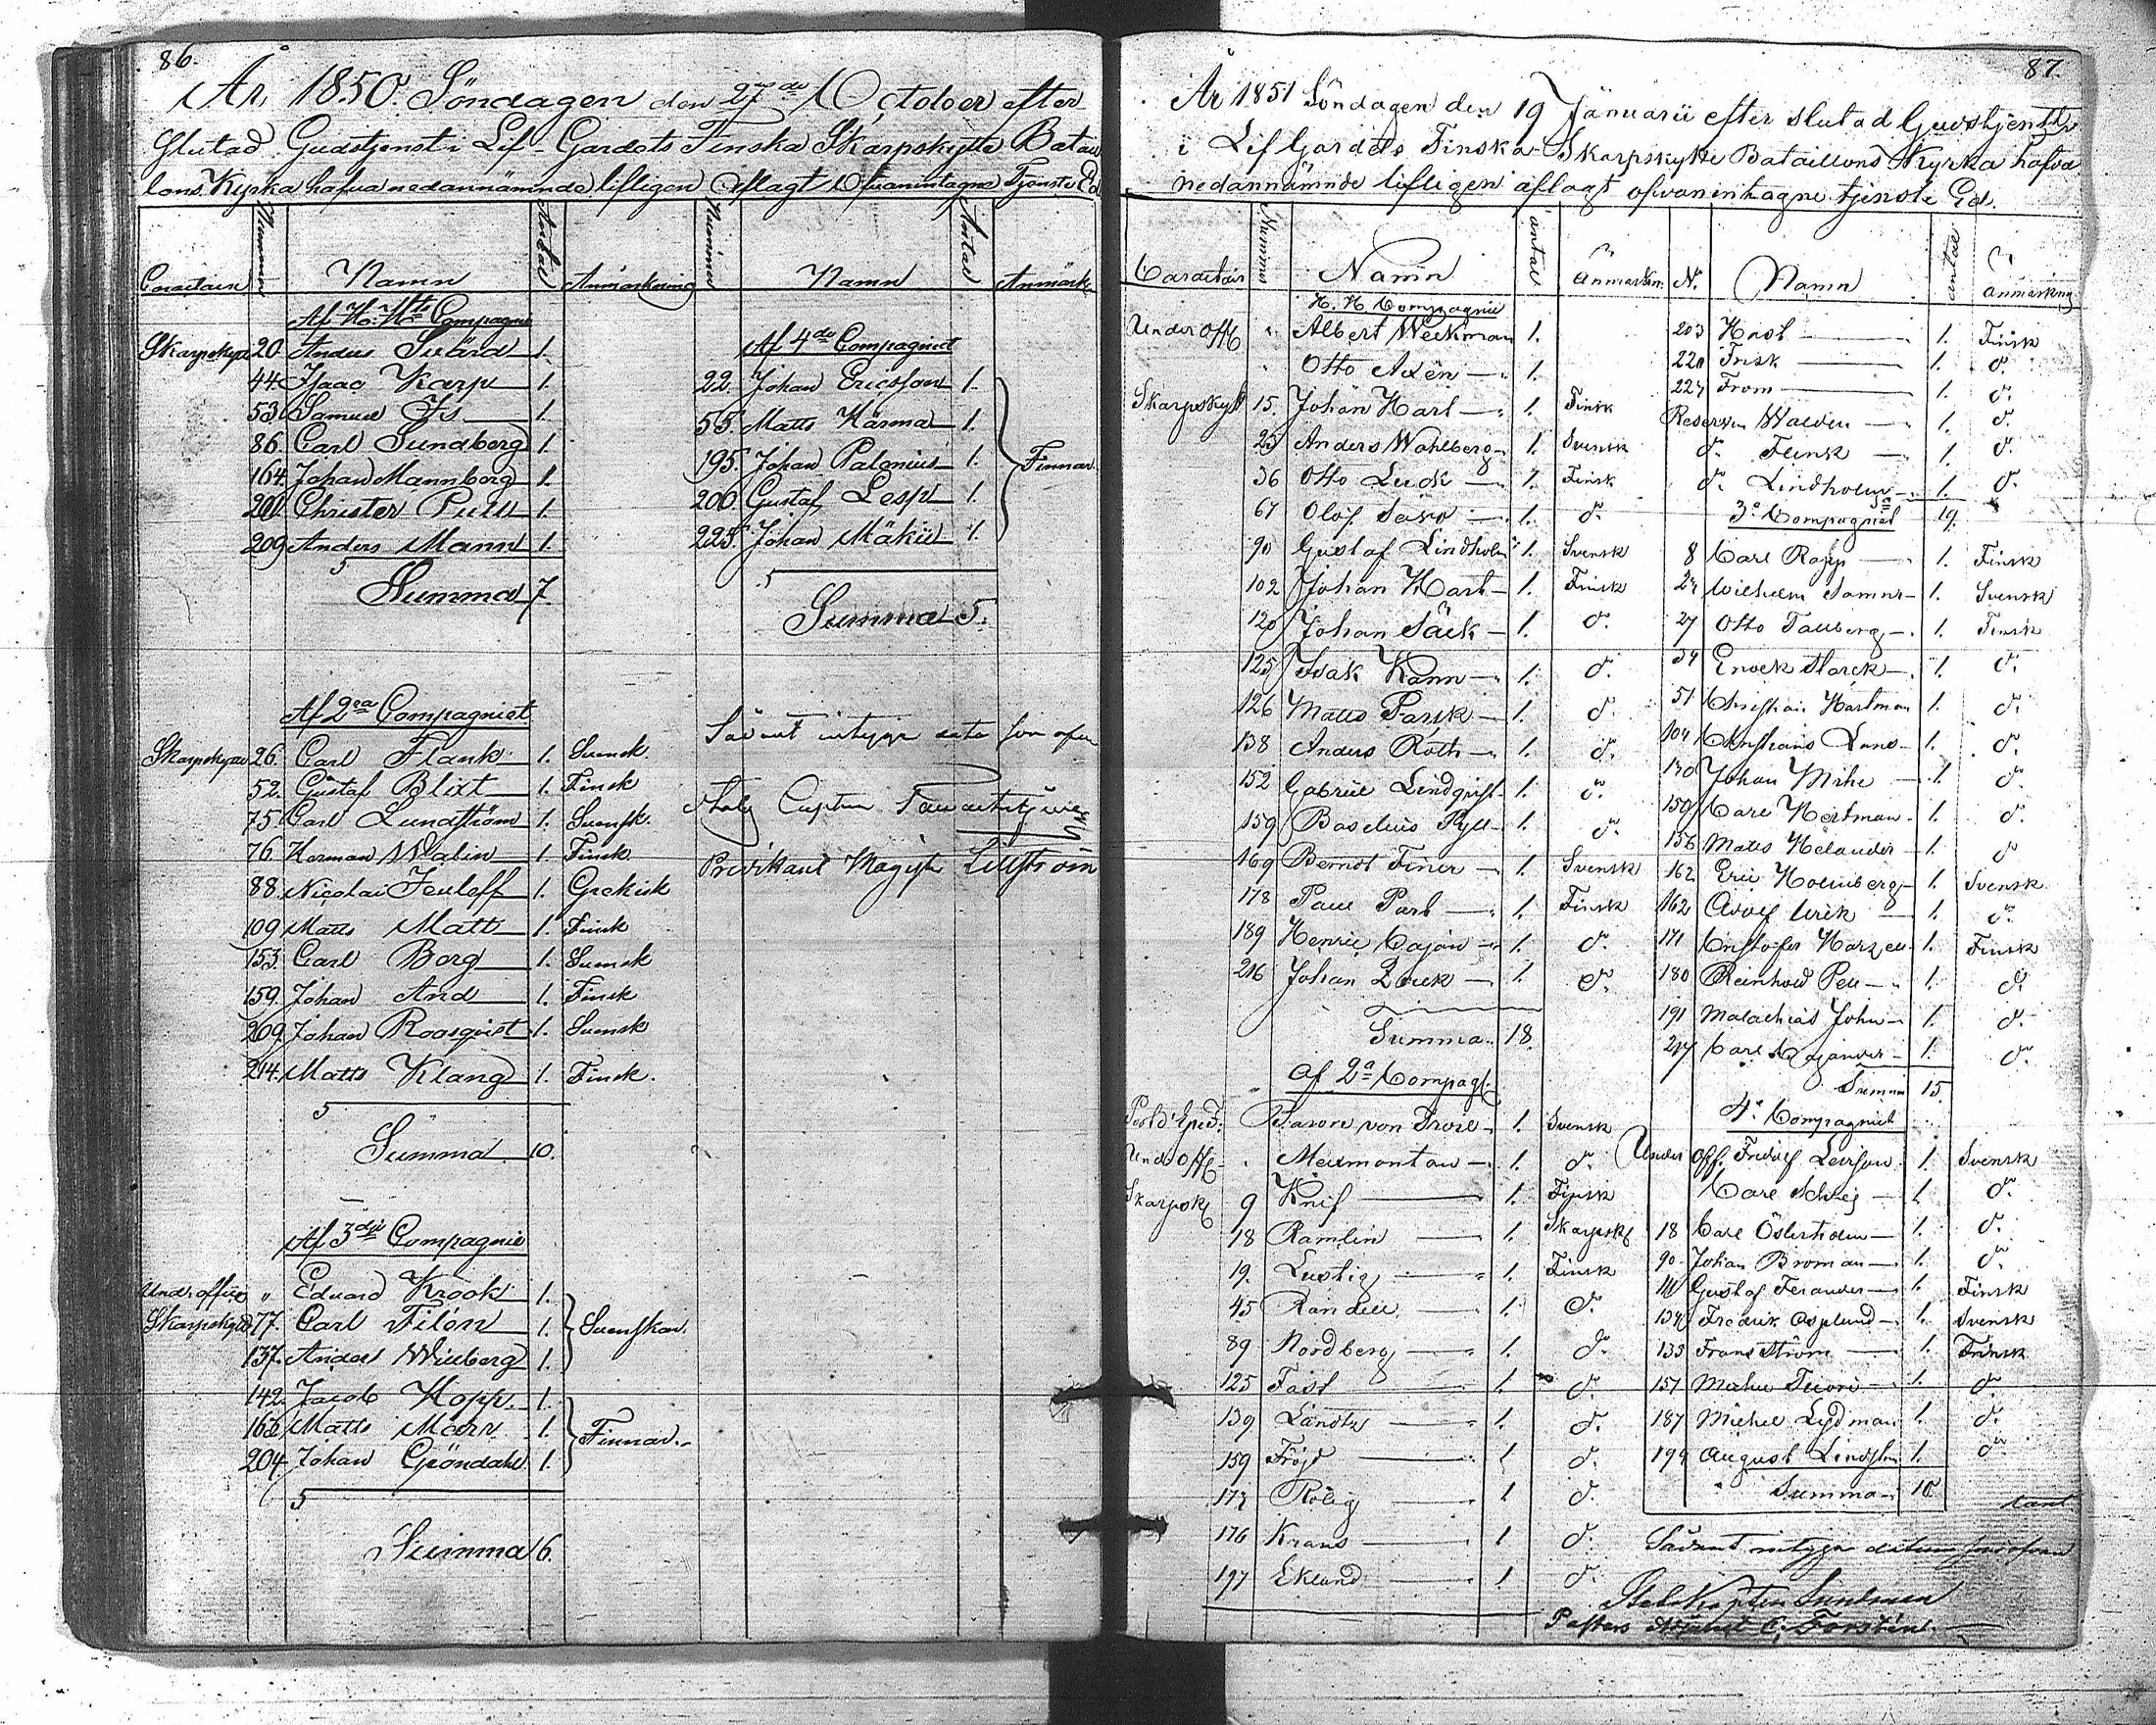 86.
År 1850. Söndagen den 27de October efter
slutad Gudstjenst i Lif-Gardets Finska Skarpskytte Batail
lons Kyrka hafva nedannämnde lifligen aflagt Ofvanintagne Tjenste Ed
Caractaire Nummer Namn Antal Anmärkning Nummer Namn Antal Anmärk
Af H. H:ts Compagnie
Skarpskytt 20. Anders Svärd 1.
44. Isaac Karp 1.
53. Samuel Is 1.
86. Carl Sundberg 1.
164. Johan Mannberg 1.
Christer 1.
209 Anders Mann 1.
Summa 7.
Af 2ra Compagniet
Skarpskytt 26. Carl Flank 1. Svensk.
52. Gustaf Blixt 1. Finsk
75. Carl Lundström 1. Svensk.
76. Herman Walin 1. Finsk
88. Nicolai 1. Grekisk
109 Matts Matt 1. Finsk
153. Carl Berg 1. Svensk
159. Johan And 1. Finsk
209. Johan Roosqvist 1. Svensk
214. Matts Klang 1. Finsk.
Summa 10.
Af 3die Compagnie
Under officer " Eduard Krook 1.
Skarpskytt 77. Carl Filén 1. Svenskar.
137. Anders Wiuberg 1.
142. Jacob Kopp. 1.
Matts Marr 1. Finnar.
204 Johan Gröndahl 1.
Summa 6.
Af 4de Compagniet
22. Johan Ericsson 1.
55. Matts Härmä 1.
195. Johan Palonius 1. Finnar.
200. Gustaf Lesp 1.
225. Johan Mäkii 1.
Summa 5.
Sådant intyga dato som ofvan
Stabs Capten
Predikant Magister Lillström
87.
År 1851 Söndagen den 19 Januarii efter slutad Gudstjenst
i Lif Gardets Finska Skarpskytte Bataillons Kyrka hafva
nedannämnde lifligen aflagt ofvanintagne tjenste Ed.
Caractair Nummer Namn antal Anmärkn: No. Namn antal anmärkning
H. H. Compagnie
Under Off " Albert Weckman 1.
" Otto Axén 1.
Skarpskytt 15. Johan Harl 1. Finsk
25 Anders Wahlberg 1. Svensk
36 Otto Luck 1. Finsk
67 Olof 1. do.
90 Gustaf Lindholm 1. Svensk
102 Johan Hast 1. Finsk
120 Johan Säck 1. do.
125 Isak Kann 1. do.
126 Matts Parsk 1. do.
138 Anders Roth 1. do.
152 Gabriel Lindqvist 1. do.
159 Basilius Pyll 1. do.
169 Berndt Finer 1. Svensk
178 Paul Part 1. Finsk
189 Henric Cajan 1. do.
216 Johan 1. do.
Summa 18.
Af 2a Compagt.
Baron von 1. Svensk
Und: Off " Meurmontan 1. do.
Skarpsk 9 Knif 1. Finsk
18 Ramlin 1. Skarpsk
19. Lustig 1. Finsk
45 Randell 1. do.
89 Nordberg 1. do.
125 Fast 1. do.
139 Landtz 1. do.
159 Fröjd 1 do.
173 Rolig 1 do.
176 Krans 1 do.
197 Eklund 1 do.
203 Hast 1. Finsk
220 Frisk 1. do.
227 From 1. do.
Reserven Walden 1. do.
do. Flink 1. do.
do. Lindholm 1. do.
19.
3e Compagniet
8 Carl Rapp 1. Finsk
24 Wilhelm 1. Svensk
27 Otto Tallberg 1. Finsk
34 Enock Starck 1. do.
51 Christian Hartman 1. do.
104 Christians 1. do.
130 Johan 1. do.
150 Carl Hertman 1. do.
156 Matts Helander 1. do
162 Eric Holmberg 1. Svensk
162 Adolf 1. do.
171 Cristofer 1. Finsk
180 Reinhold Pell 1. do.
191 Malachias John 1. do.
217 Carl Cajander 1. do.
Summa 15.
4e Compagniet
Under Off. Fridolf 1. Svensk
Carl 1. do.
18 Carl Österholm 1. do.
90. Johan Broman 1. do.
Gustaf Ferander 1. Finsk
134 Fredrik Asplund 1. Svensk
135 Frans Ström 1. Finsk
157 1. do.
187 Michel Lydman 1. do.
194 August Lindström 1. do
Summa 10
Sådant intyga datum som ofvan
Stabs Kapten
Pastors Adjunct C. Forstén.